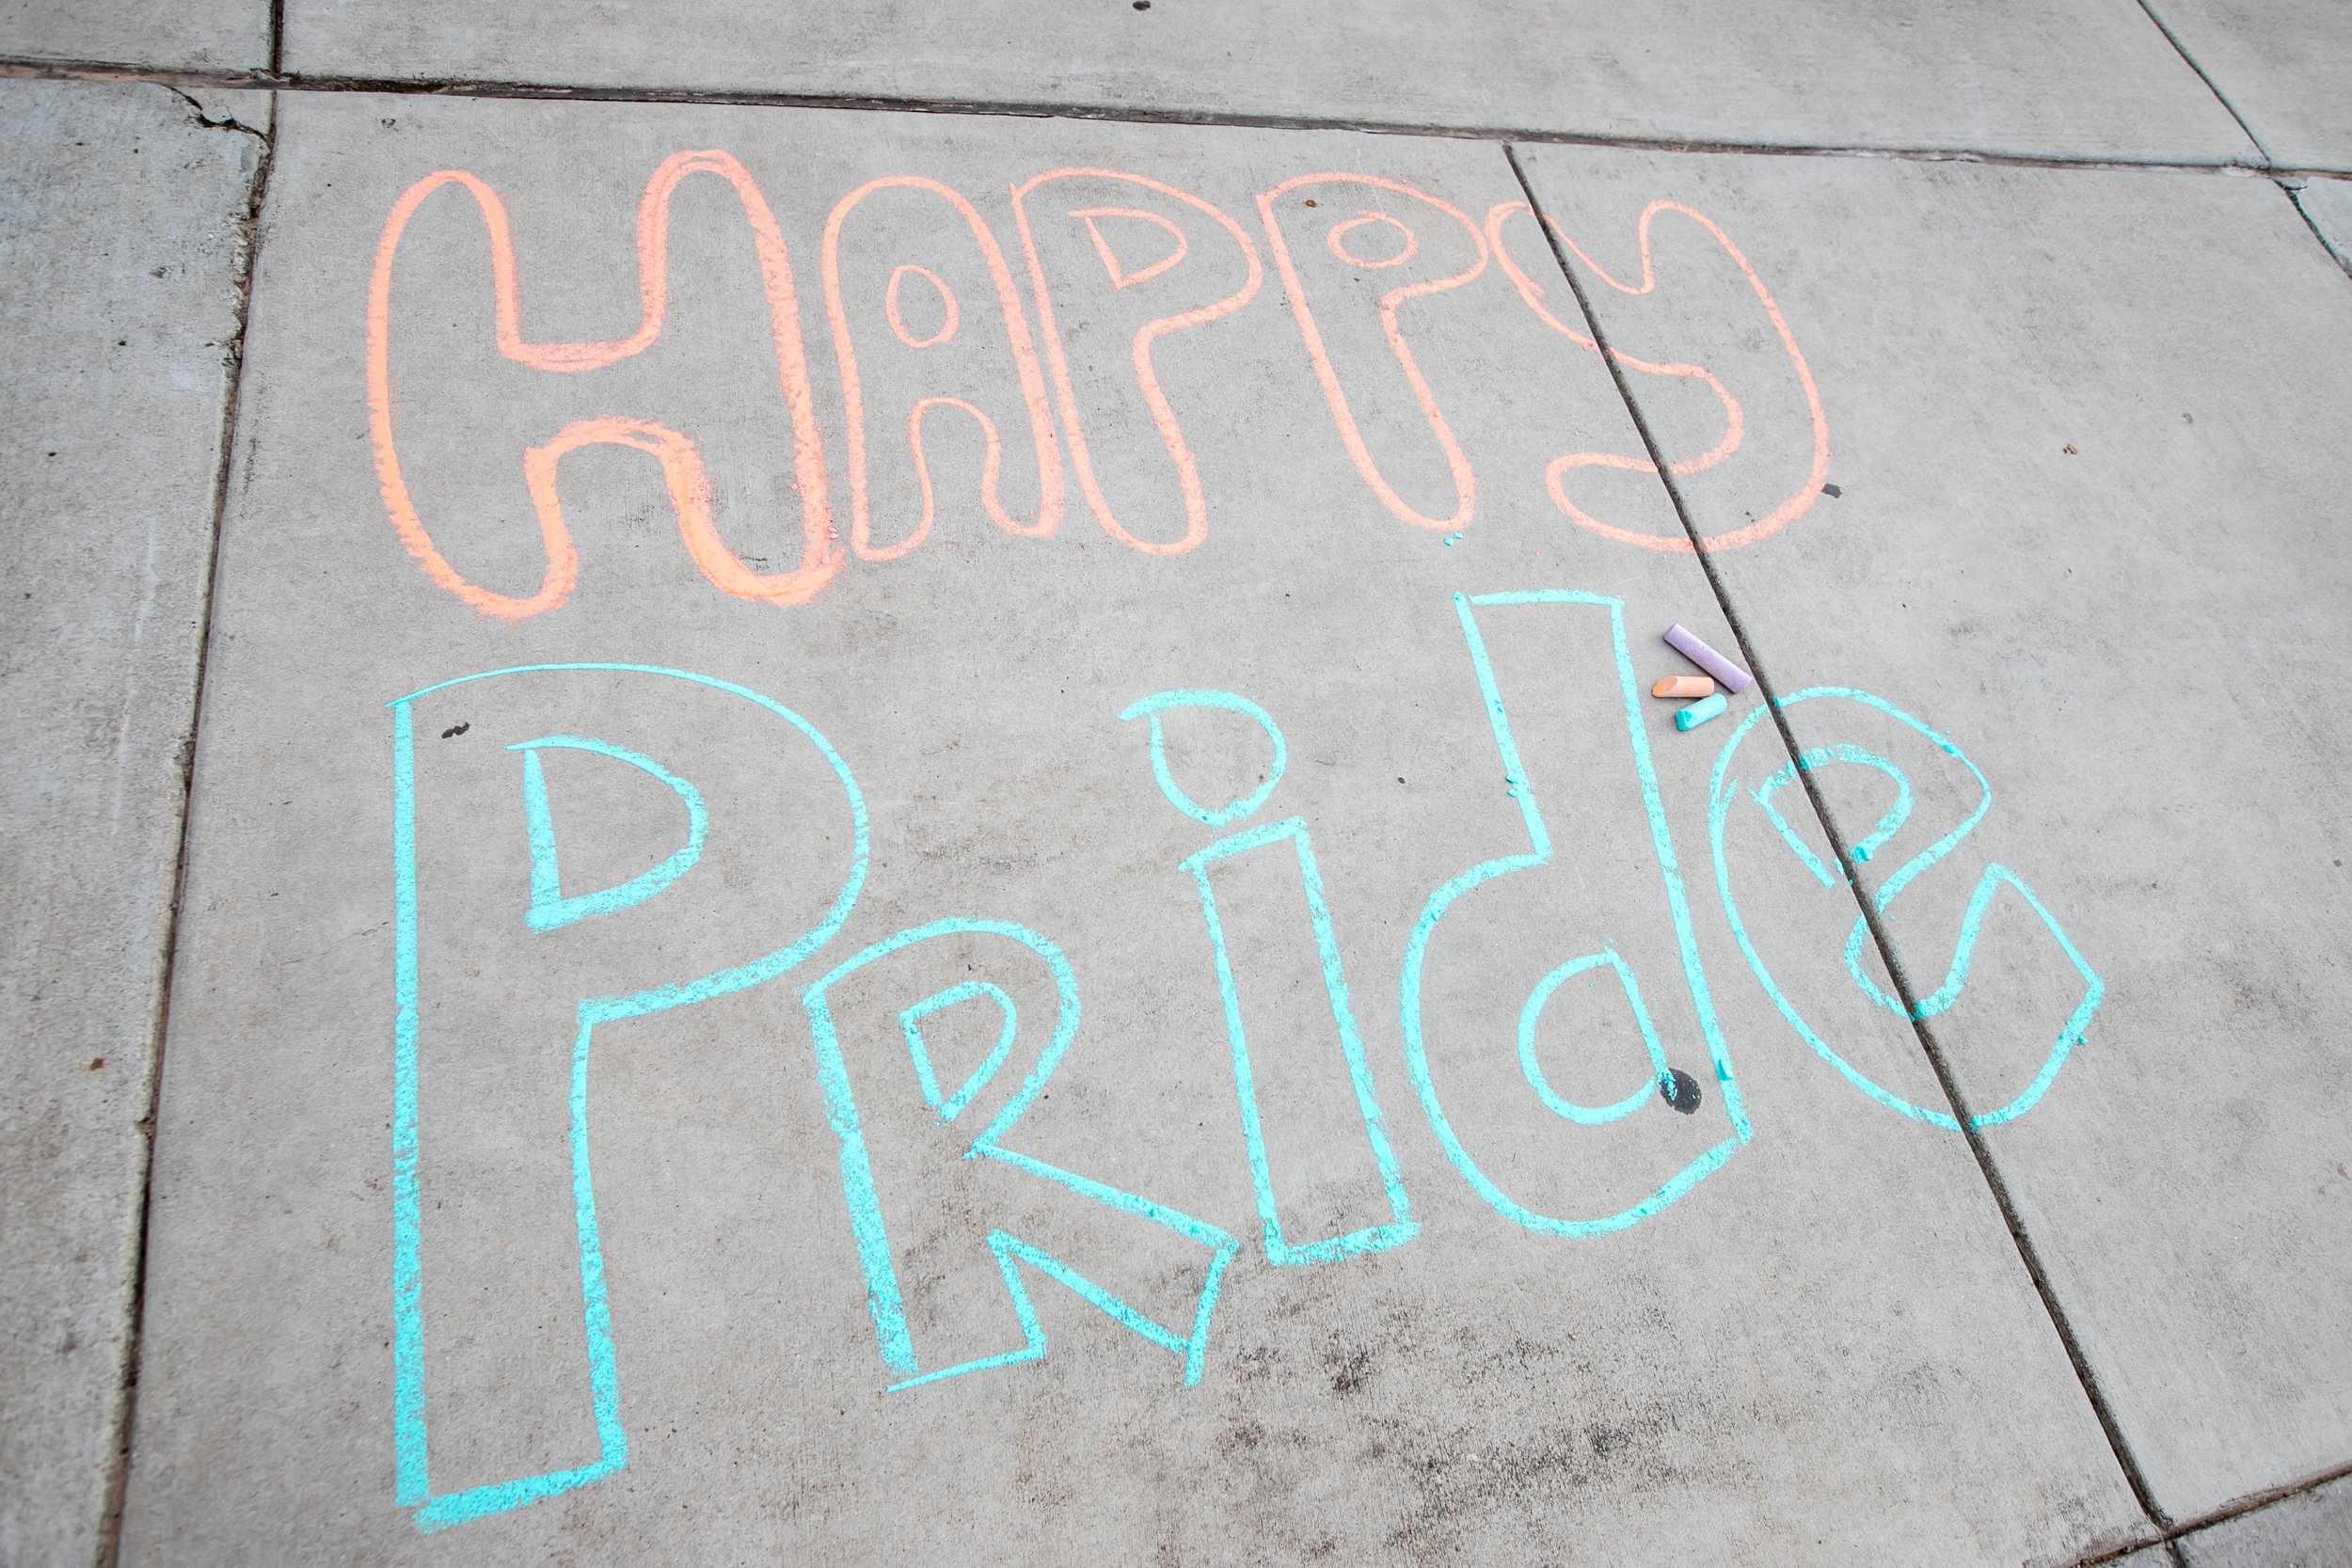 HAPPY
PRide